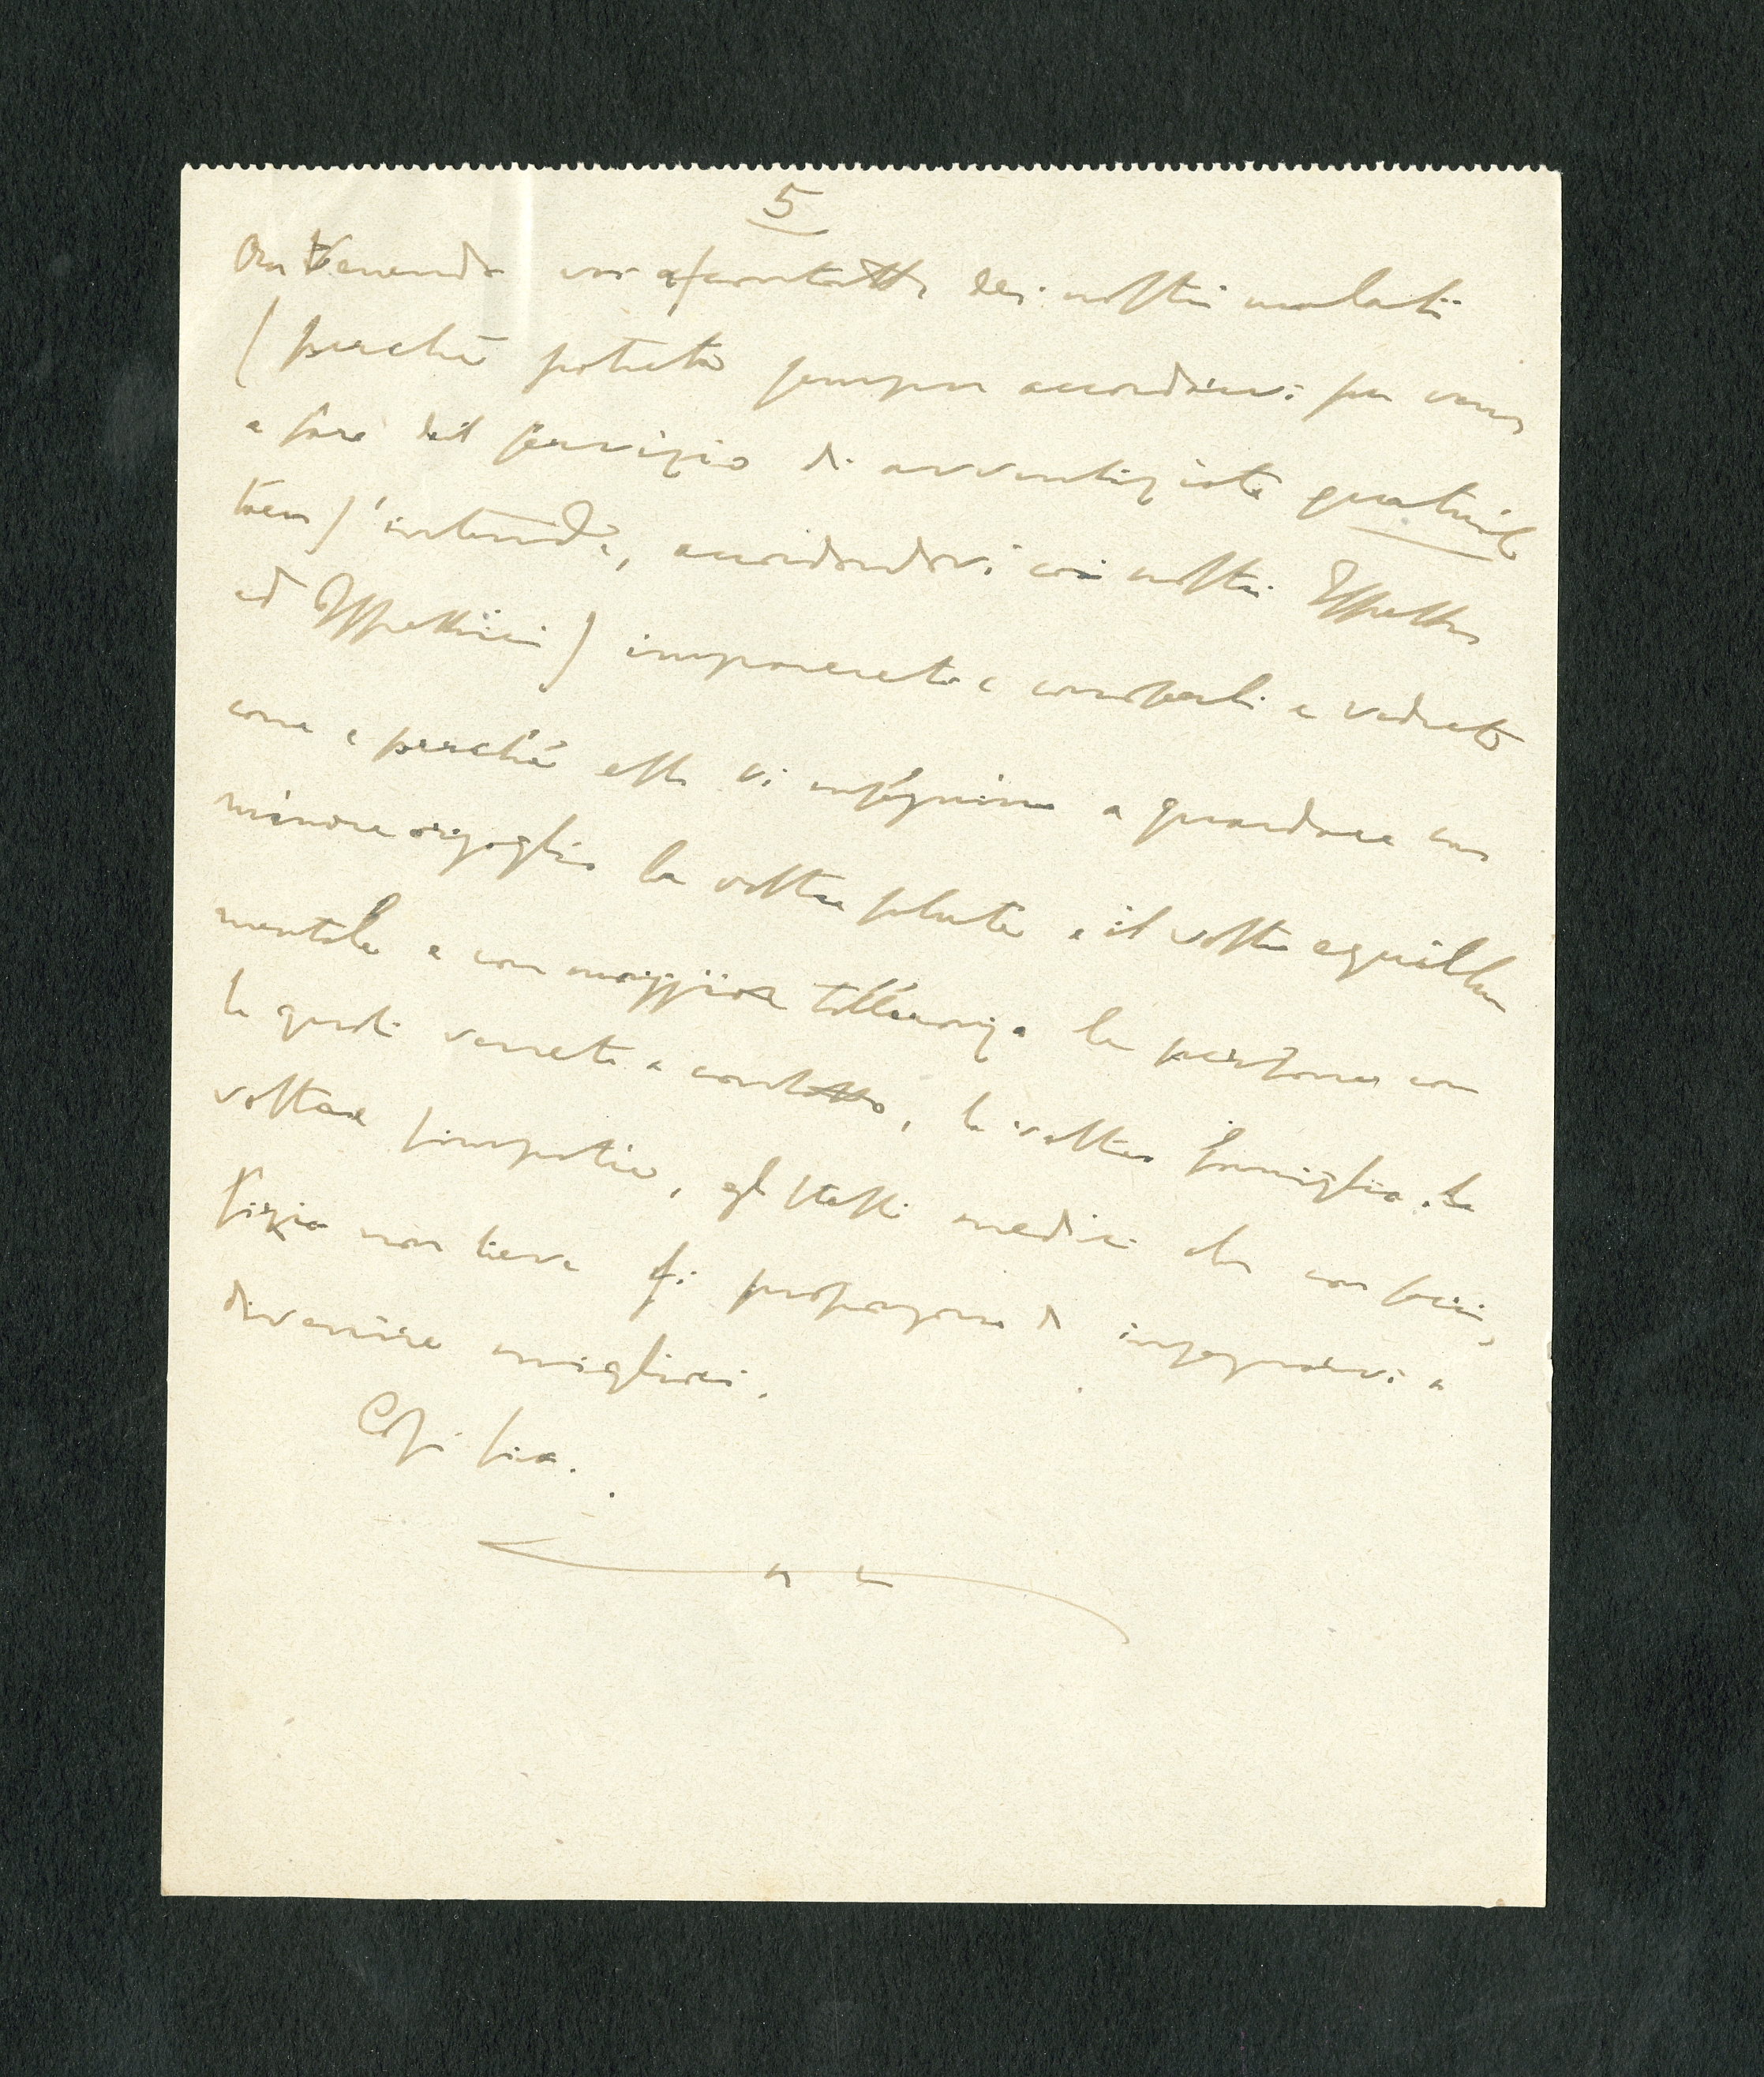 5
Ora venendo voi a contatto dei nostri malati
( perchè potrete sempre accordarvi per venire
a fare del servizio di avventiziato gratuito
( s'intende, accordandovi coi nostri Ispettori
ed Ispettrici ) imparerete a conoscerli e vedrete
come e perchè essi vi insegnino a guardare con
minore orgoglio la vostra salute e il vostro equilibrio
mentale e con maggiore tolleranza le persone con
le quali verrete a contatto, la vostra famiglia, le
vostre simpatie, gli stessi medici che con
fizio non lieve si propongono di insegnarvi a
divenire migliori.
Così sia.